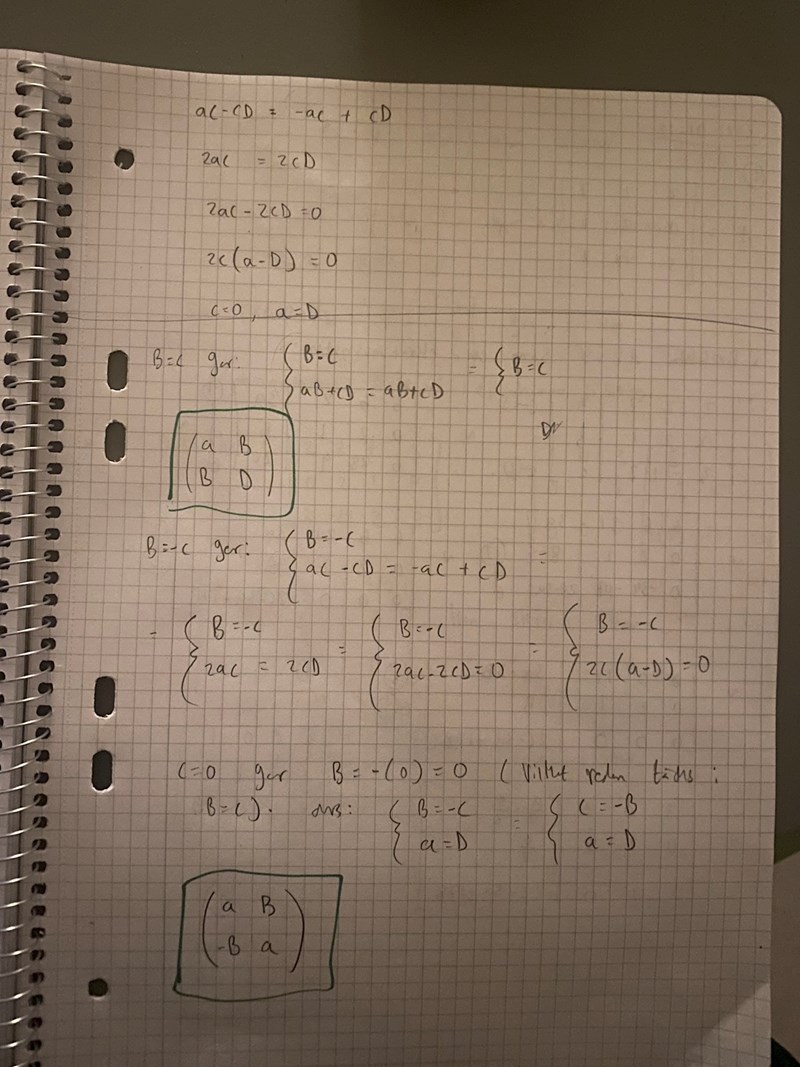 ac-cD = -ac + cD
2ac = 2cD
2ac - 2cD = 0
2c(a-D) = 0
c=0, a=D
B=c ger: { B=c = { B=c
aB+cD = aB+cD
( a B
B D )
B=-c ger: { B=-c =
ac-cD = -ac + cD
= { B=-c = { B=-c = { B=-c
2ac = 2cD 2ac-2cD=0 2c(a-D)=0
c=0 ger B = -(0) = 0 (Vilket redan täcks:
B=c). dvs: { B=-c = { c=-B
a=D a=D
( a B
-B a )